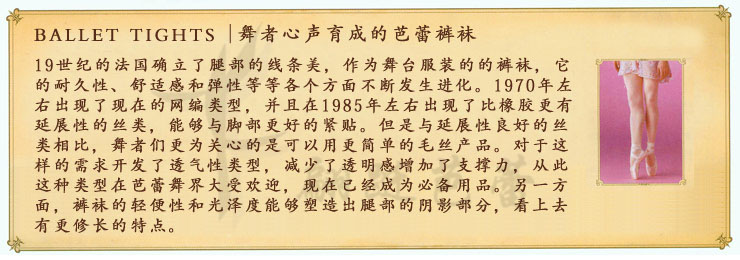 BALLET TIGHTS |舞者心声育成的芭蕾裤袜
19世纪的法国确立了腿部的线条美，作为舞台服装的的裤袜，它
的耐久性、舒适感和弹性等等各个方面不断发生进化。1970年左
右出现了现在的网编类型，并且在1985年左右出现了比橡胶更有
延展性的丝类，能够与脚部更好的紧贴。但是与延展性良好的丝
类相比，舞者们更为关心的是可以用更简单的毛丝产品。对于这
样的需求开发了透气性类型，减少了透明感增加了支撑力，从此
这种类型在芭蕾舞界大受欢迎，现在已经成为必备用品。另一方
面，裤袜的轻便性和光泽度能够塑造出腿部的阴影部分，看上去
有更修长的特点。